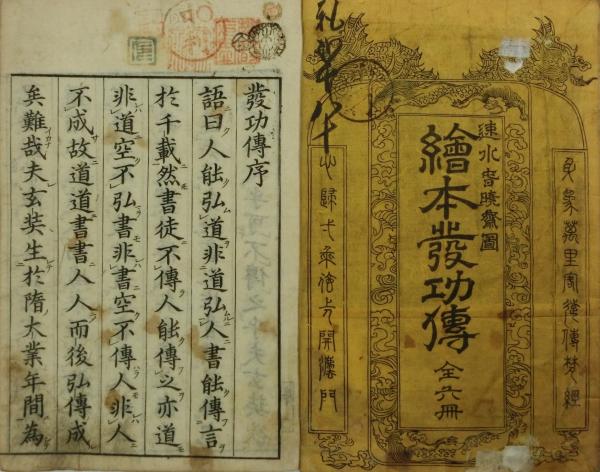 萬里
傳梵經
速水春曉齋圖
繪本發功傳
全六冊
開
門
發功傳序
語曰人能弘道非道弘人書能傳言
於千載然書徒不傳人能傳之亦道
非道空不弘書非書空不傳人非人
不成故道道書書人人而後弘傳成
矣難哉夫玄奘生於隋大業年間為